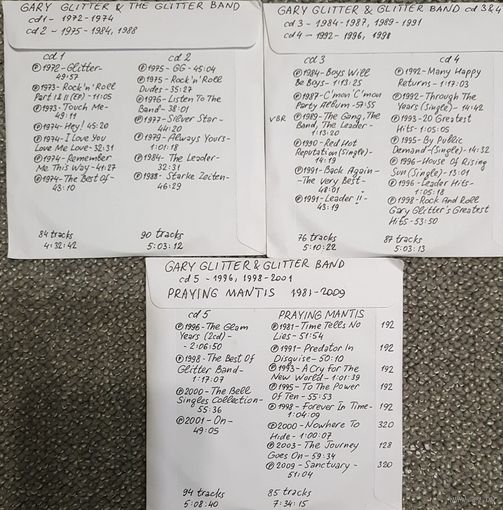 GARY GLITTER & THE GLITTER BAND
cd1 - 1972-1974
cd 2 - 1975-1984, 1988
cd 1
℗1972-Glitter-
49:57
℗1973-Rock'n'Roll
Part I & II (EP) - 11:05
℗1973-Touch Me-
49:11
℗1974-Hey! 45:20
℗1974-I Love You
Love Me Love-32:31
℗1974-Remember
Me This Way-41:27
℗1974-The Best Of-
43:10
84 tracks
4:32:42
cd 2
℗1975-GG-45:04
℗1975-Rock'n'Roll
Dudes-35:27
℗1976-Listen To The
Band-38:01
℗1977-Silver Star-
44:20
℗1979-Always Yours-
1:01:18
℗1984-The Leader-
32:31
℗1988-Starke Zeiten-
46:29
90 tracks
5:03:12
GARY GLITTER & GLITTER BAND cd 3&4
cd 3 - 1984-1987, 1989-1991
cd 4 - 1992-1996, 1998
cd 3
℗1984-Boys Will
Be Boys-1:13:25
℗1987-C'mon C'mon
Party Album-57:55
VBR ℗1989-The Gang, The
Band, The Leader-
1:13:20
℗1990-Red Hot
Reputation (Single)-
14:19
℗1991-Back Again-
-The Very Best-
48:01
℗1991-Leader !!-
43:19
76 tracks
5:10:22
cd 4
℗1992-Many Happy
Returns-1:17:03
℗1992-Through The
Years (Single)-14:42
℗1993-20 Greatest
Hits-1:05:05
℗1995-By Public
Demand-(Single)-14:32
℗1996-House Of Rising
Sun (Single)-13:01
℗1996-Leader Hits-
1:05:18
℗1998-Rock And Roll
Gary Glitter's Greatest
Hits-53:50
87 tracks
5:03:13
GARY GLITTER & GLITTER BAND
cd 5 - 1996, 1998-2001
PRAYING MANTIS 1981-2009
cd 5
℗1996-The Glam
Years (2cd)-
-2:06:50
℗1998-The Best Of
Glitter Band-
1:17:07
℗2000-The Bell
Singles Collection-
55:36
℗2001-On-
49:05
94 tracks
5:08:40
PRAYING MANTIS
℗1981-Time Tells No 192
Lies-51:54
℗1991-Predator In 192
Disguise-50:10
℗1993-A Cry For The 192
New World-1:01:39
℗1995-To The Power 192
Of Ten-55:53
℗1998-Forever In Time- 192
1:04:09
℗2000-Nowhere To 320
Hide-1:00:07
℗2003-The Journey 128
Goes On-59:34
℗2009-Sanctuary- 320
51:04
85 tracks
7:34:15